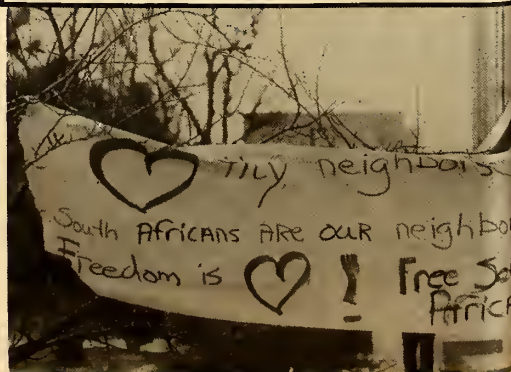 ♥ THY neighbors
South AfRicANS ARE OUR neighbo
Freedom is ♥ ! Free So
Africa